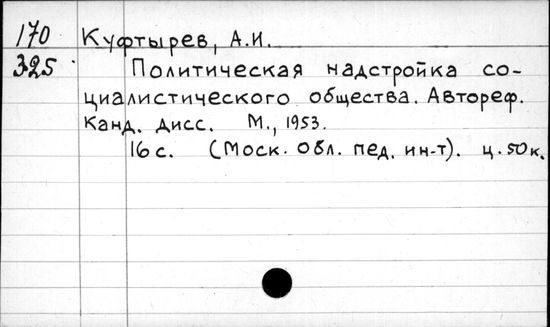 170 Куфтырев, А.И.
325 Политическая надстройка со-
циалистического общества. Автореф.
канд. дисс. М., 1953.
16 с. (Моск. Обл. пед. ин-т). ц. 50 к.